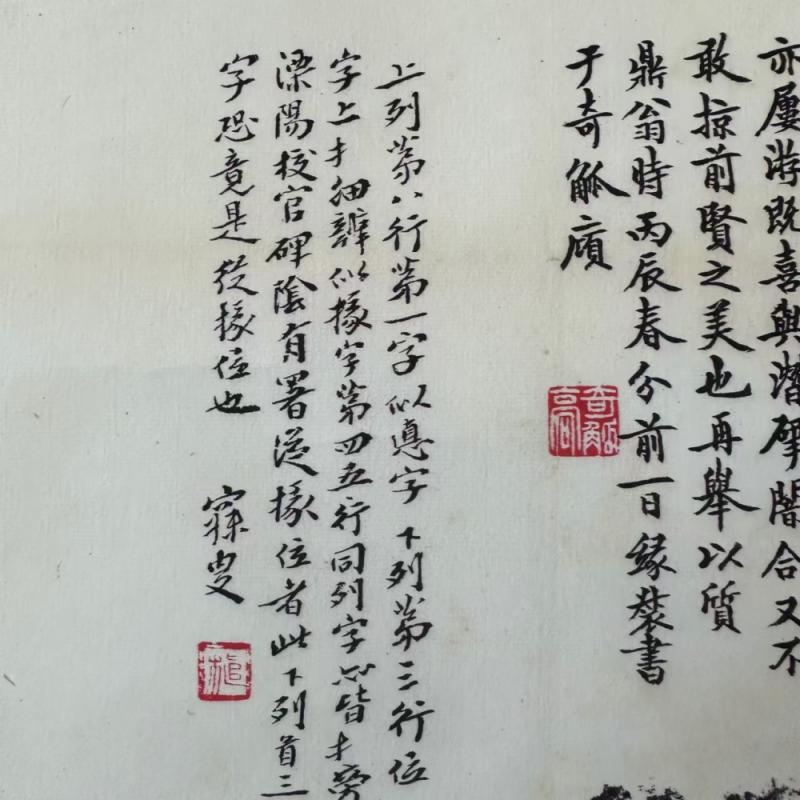 亦屢游既喜與潛研闇合又不
敢掠前賢之美也再舉以質
鼎翁時丙辰春分前一日緣裝書
于奇觚廎
奇觚
上列第八行第一字似憙字下列第三行位
字上扌細辨似掾字第四五行同列字亦皆扌旁
溧陽校官碑陰有署從掾位者此下列首三
字恐竟是從掾位也
寐叟